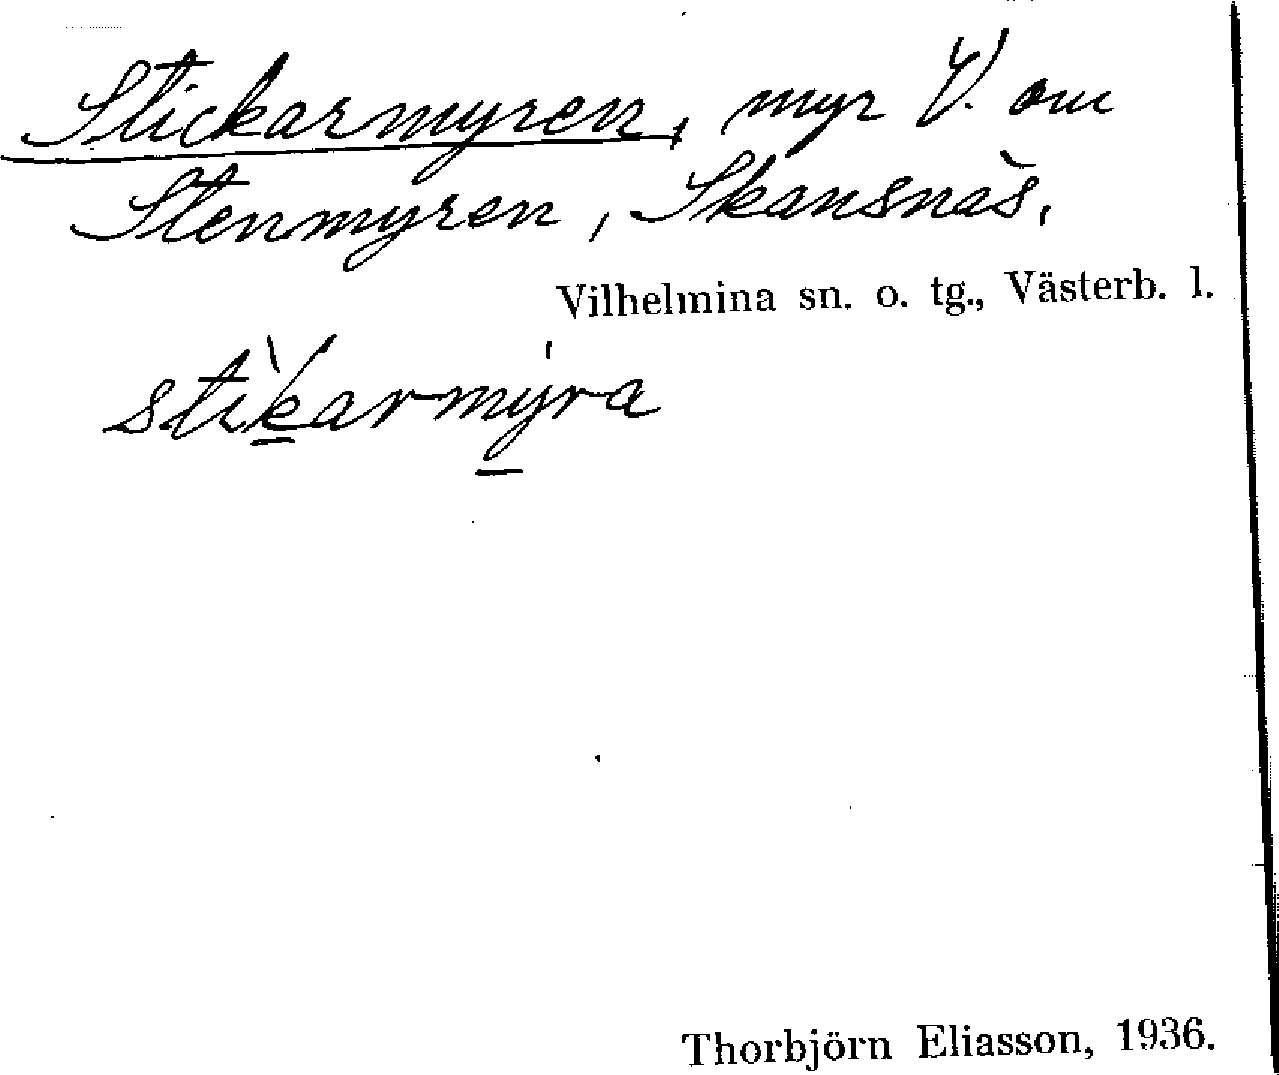 Stickarmyren, myr V. om
Stenmyren, Skansnäs.
Vilhelmina sn. o. tg., Västerb. l.
stìk̲armý̲ra
Thorbjörn Eliasson, 1936.